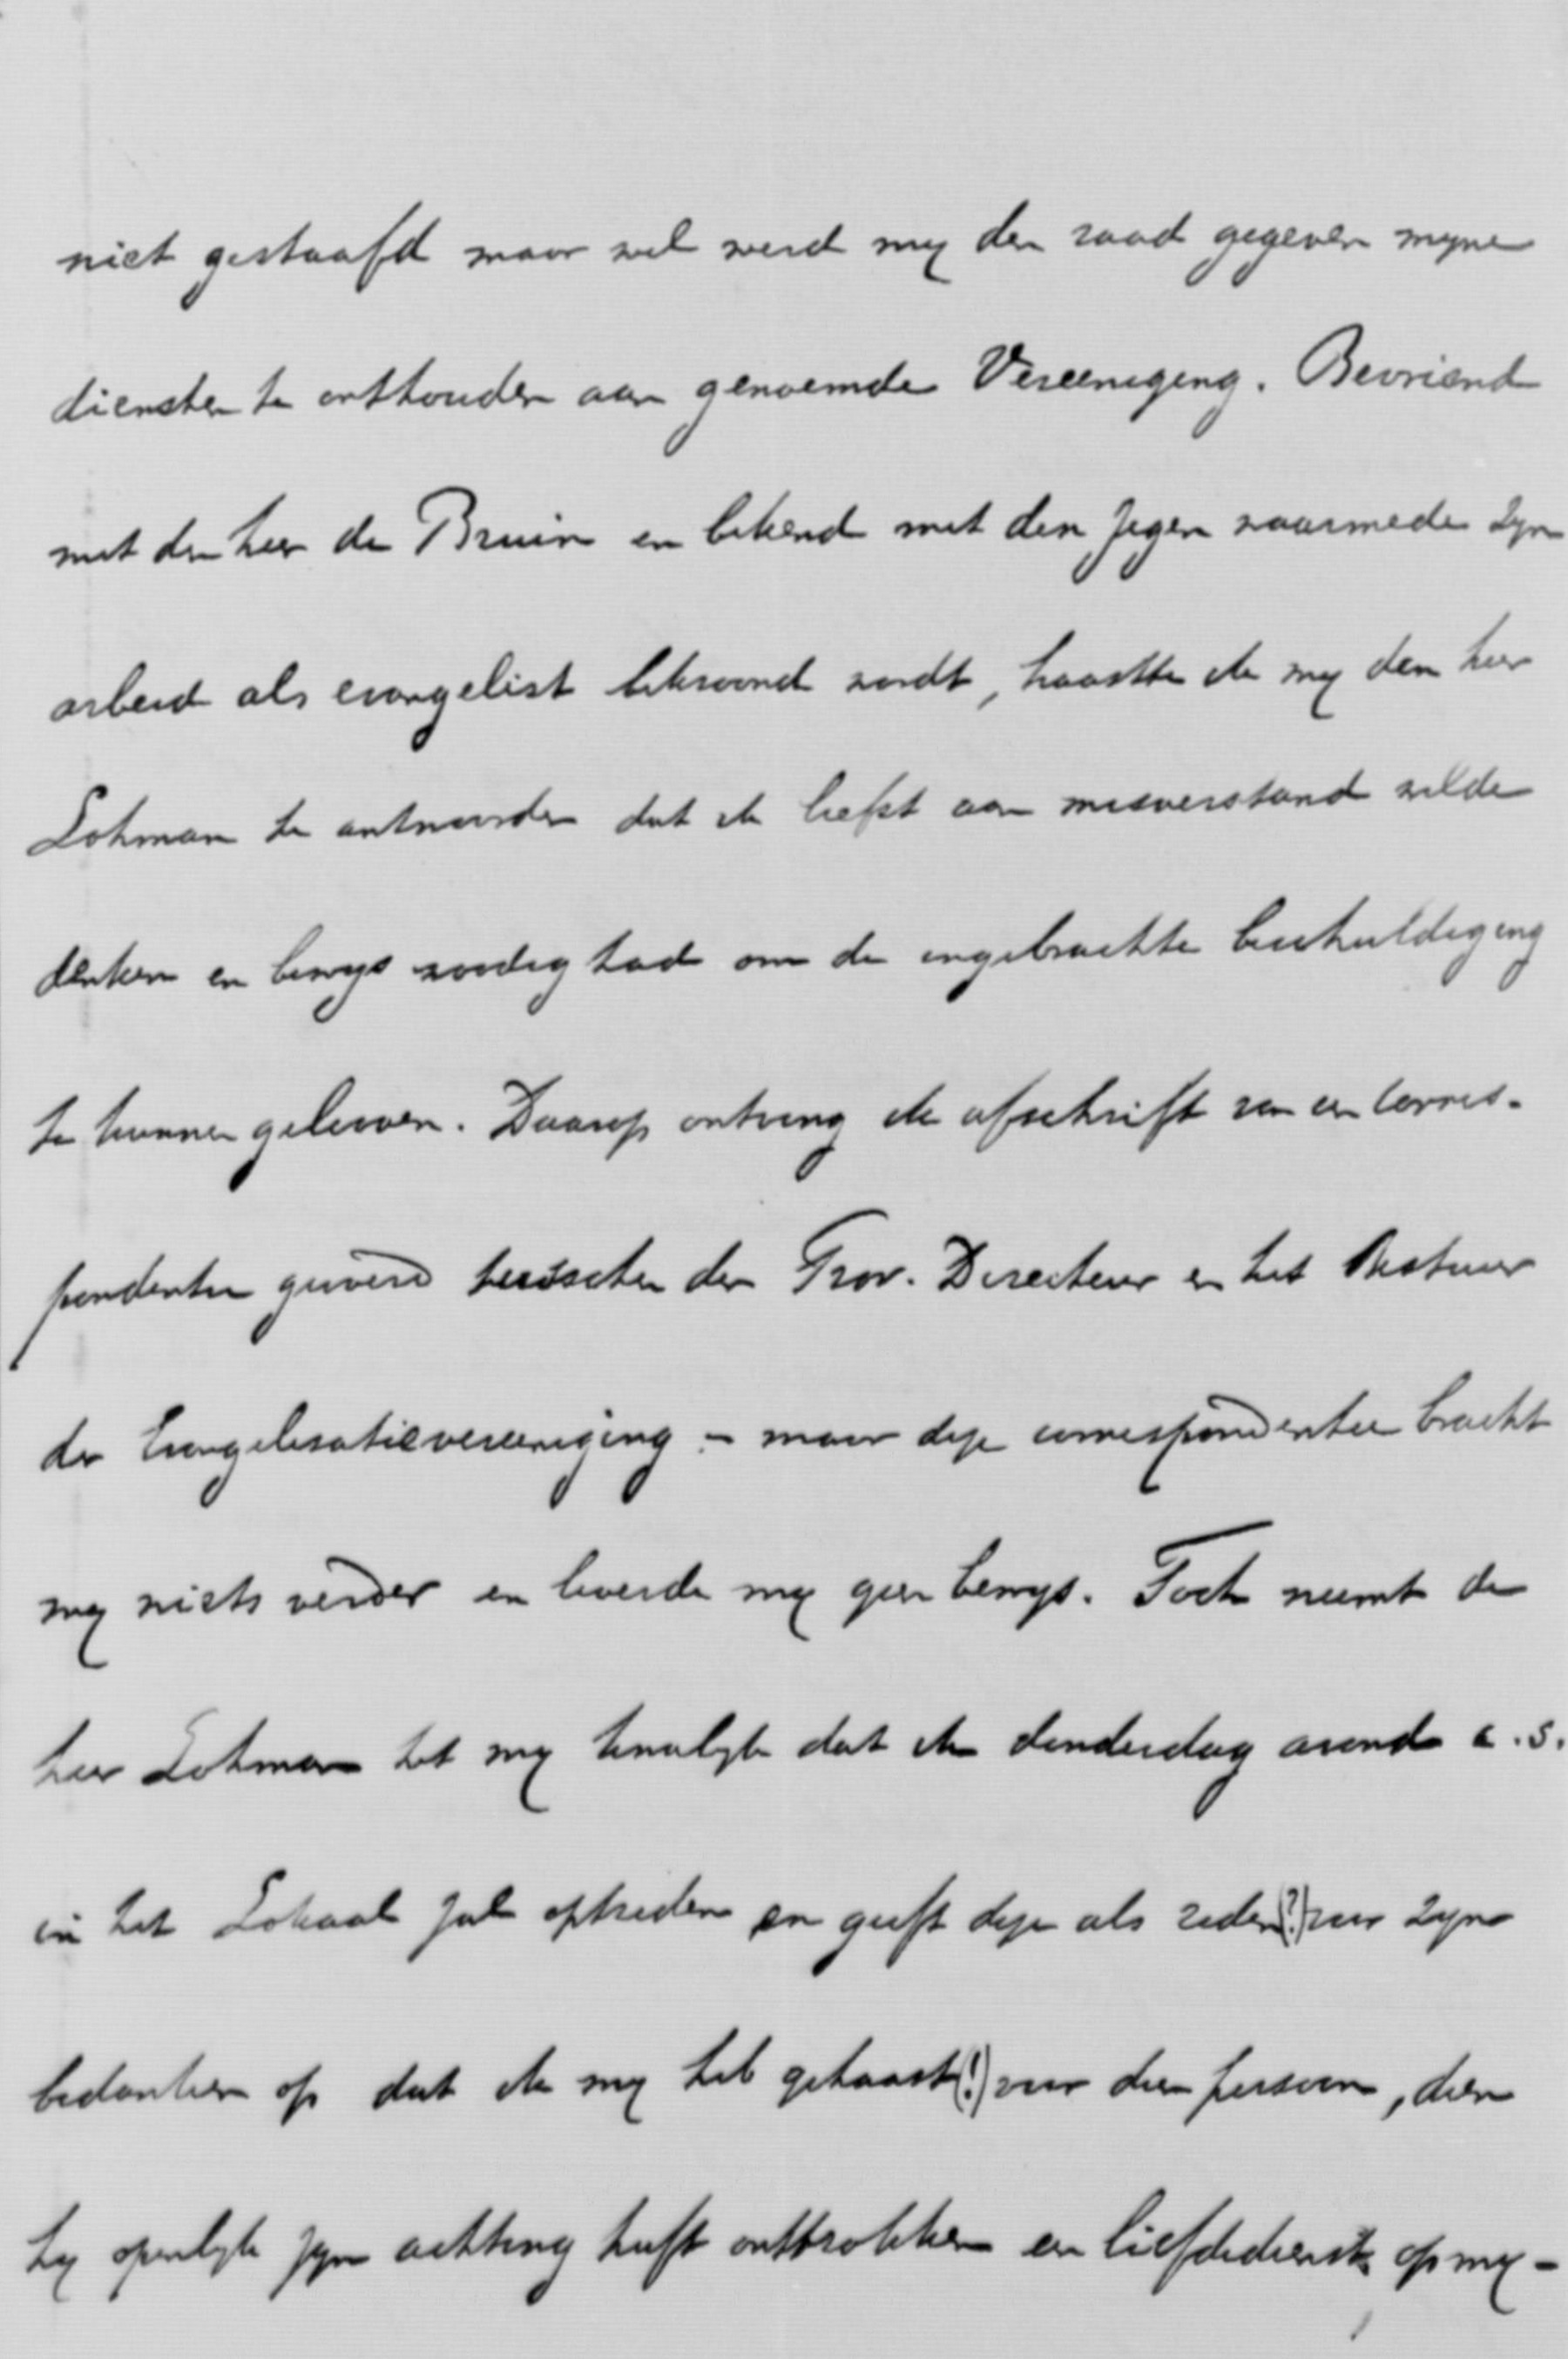 niet gestaafd maar wel werd my den raad gegeven myne
diensten te onthouden aan genoemde Vereeniging. Bevriend
met den heer de Bruin en bekend met den zegen waarmede zyn
arbeid als evangelist bekroond wordt, haastte ik my den heer
Lohman te antwoorden dat ik liefst aan misverstand wilde
denken en bewys noodig had om de ingebrachte beschuldiging
te kunnen gelooven. Daarop ontving ik afschrift van een corres-
pondentie gevoerd tusschen den Prov. Directeur en het Bestuur
der Evangelisatievereeniging - maar deze correspondentie bracht
my niets verder en leverde my geen bewys. Toch neemt de
heer Lohman het my kwalyk dat ik donderdag avond a.s.
in het Lokaal zal optreden en geeft deze als reden(?) voor zyn
bedanken op dat ik my heb gehaast(!) voor dien persoon, dien
hy openlyk zyn achting heeft onttrokken een liefdedienst op my-